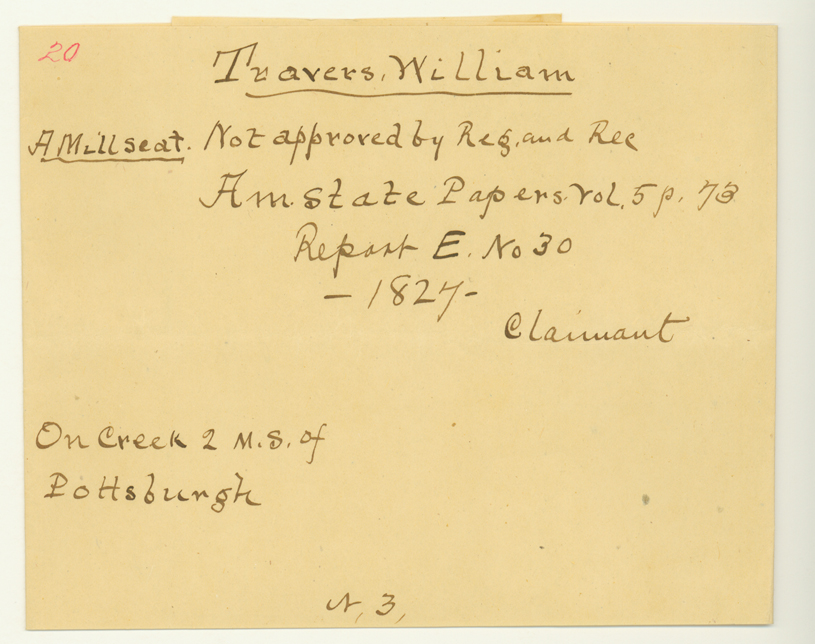 20
Travers, William
A Mill seat. Not approved by Reg. and Rec
Am. State Papers. Vol. 5 p. 73
Report E. No 30
- 1827 -
Claimant
On Creek 2 M.S. of
Pottsburgh
N, 3,